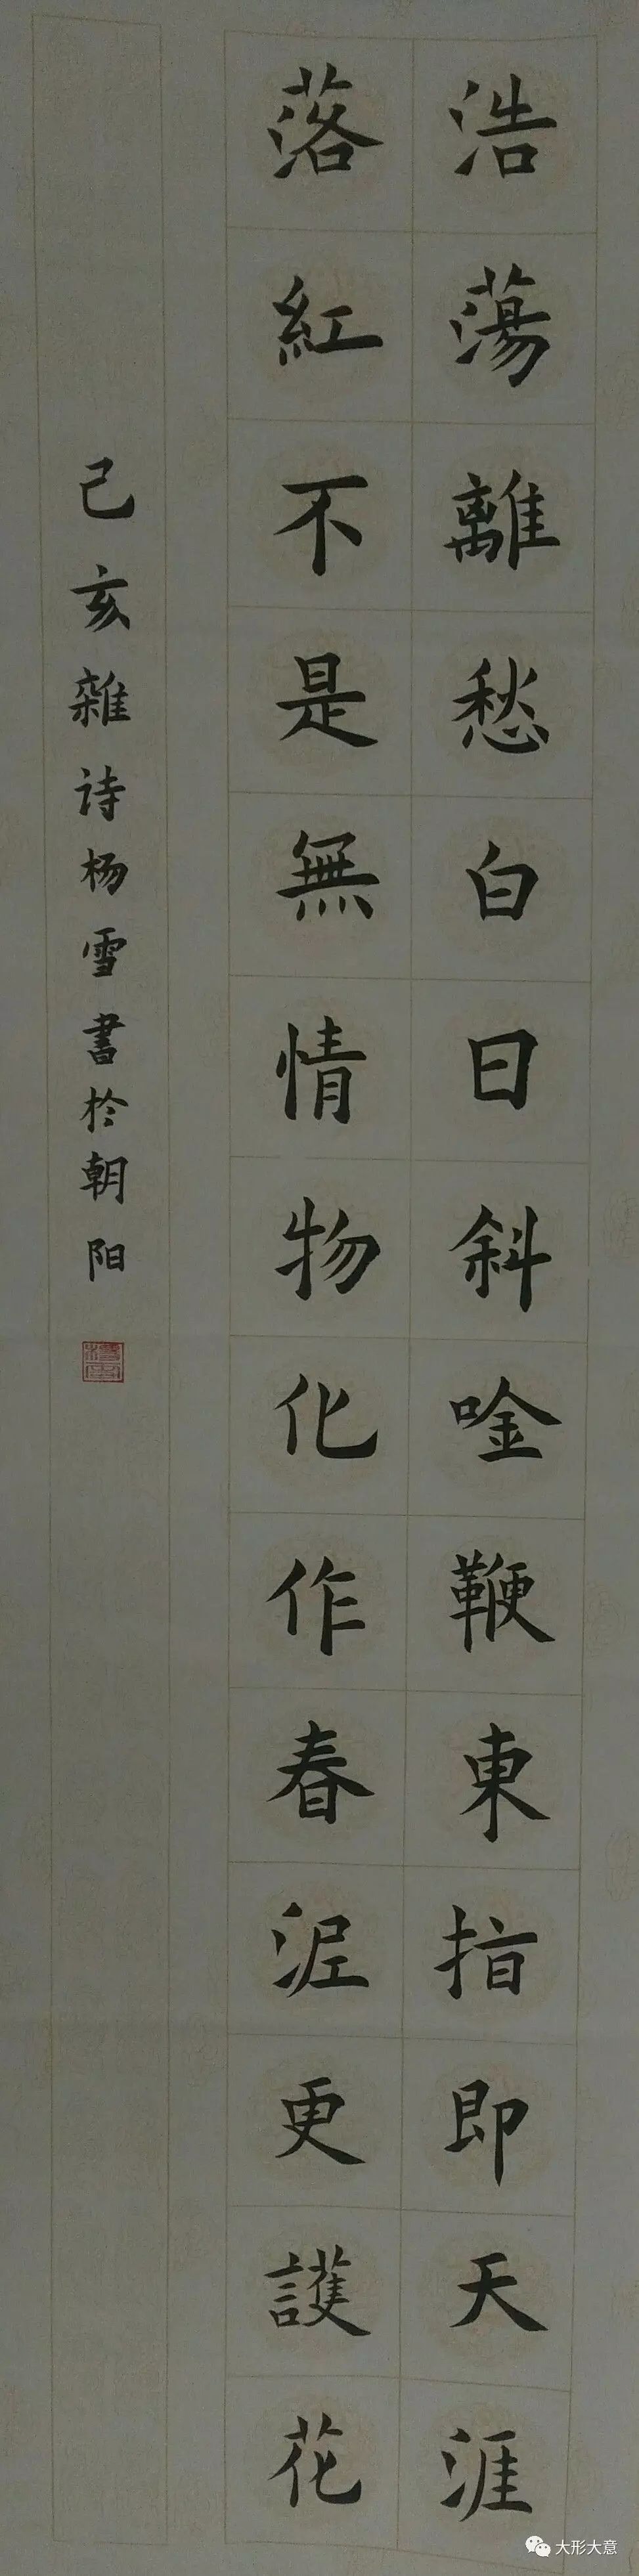 浩蕩離愁白日斜唫鞭東指即天涯
落紅不是無情物化作春泥更護花
己亥雜诗杨雪書於朝阳
大形大意